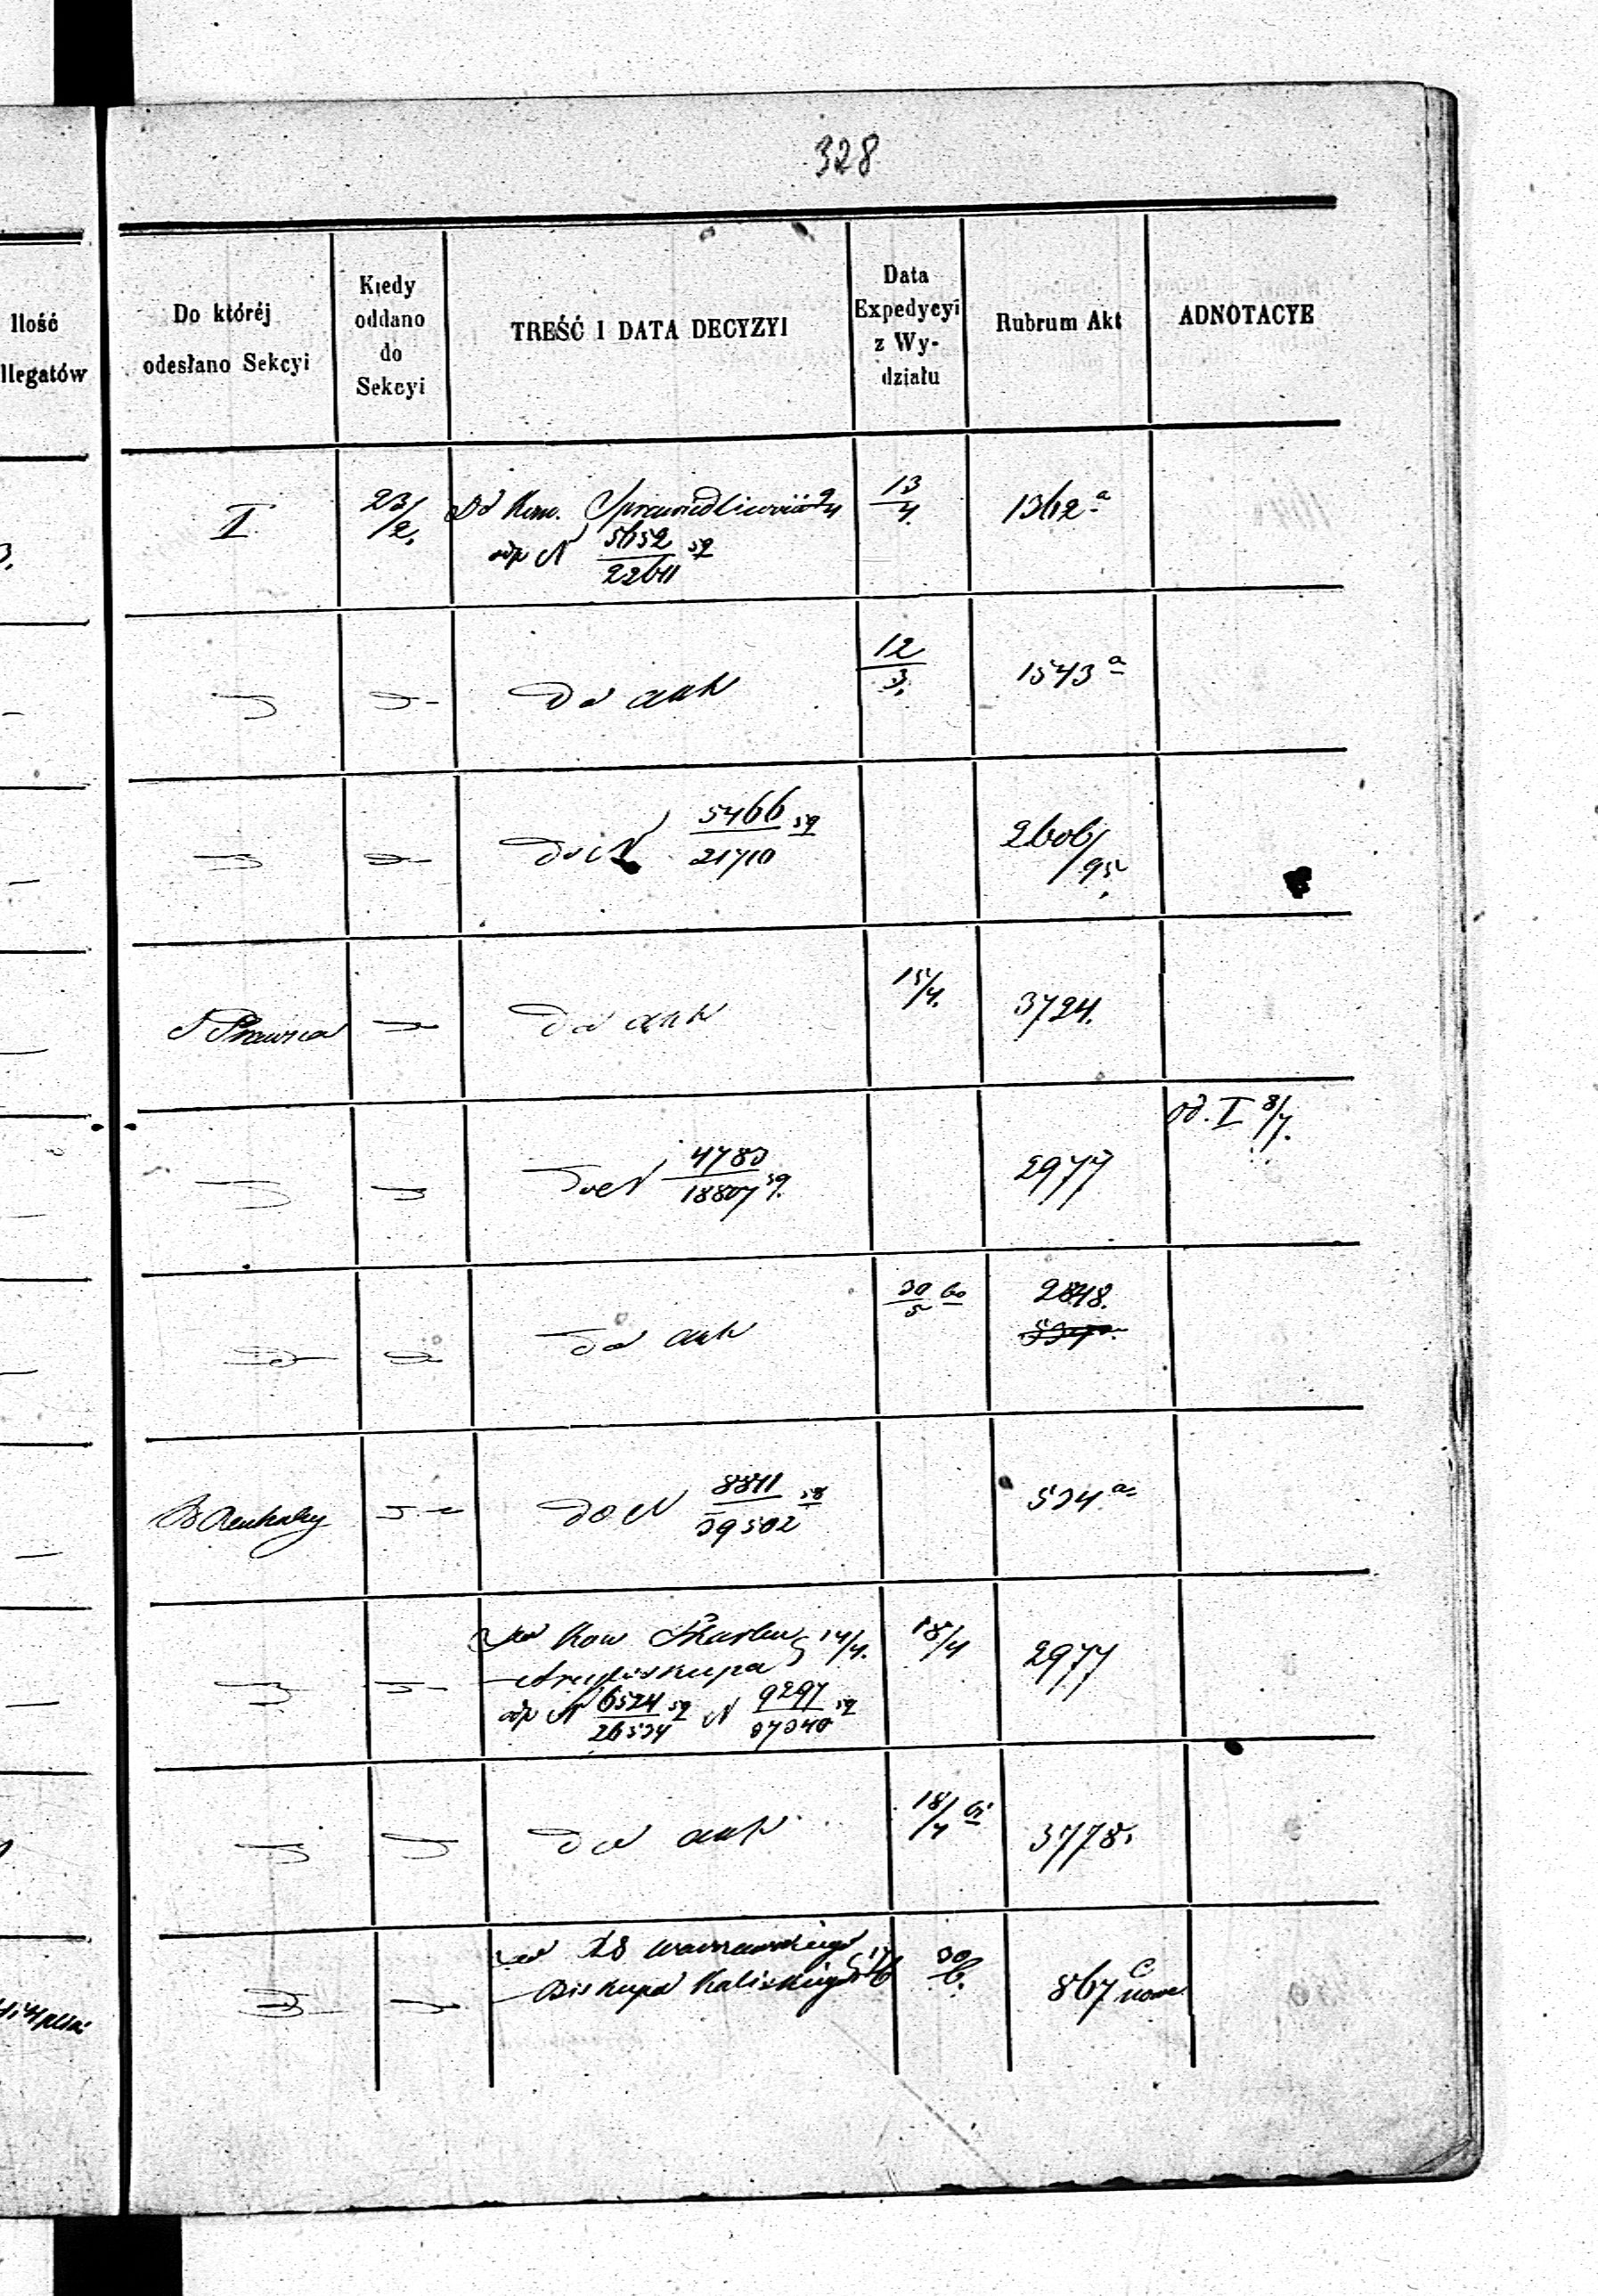 328
Ilość
llegatów
Do któréj
odesłano Sekcyi
Kiedy
oddano
do
Sekcyi
TREŚĆ I DATA DECYZYI
Data
Expedycyi
z Wy-
działu
Rubrum Akt
ADNOTACYE
I.
23/2.
Do Kom. Sprawiedliwości
odp N 5652/22611 59
13/4.
1362 a
Do akt
12/3.
1543 a
Do N 5466/21710 59
2606/95.
Prawna
Do akt
15/4.
3724.
Do N 4783/18807 59.
2977
od. I 8/4.
Do akt
30/5 60
2848.
Do N 8811/39502 58
534 a
Do Kom Skarbu 14/4.
Arcybiskupa
odp N 6524/26534 59 N 9297/37340 59
18/4
2977
Do akt
18/4 61
3778.
Do RG Warszawskiego
Biskupa Kaliskiego
30/6.
867 C
nowe